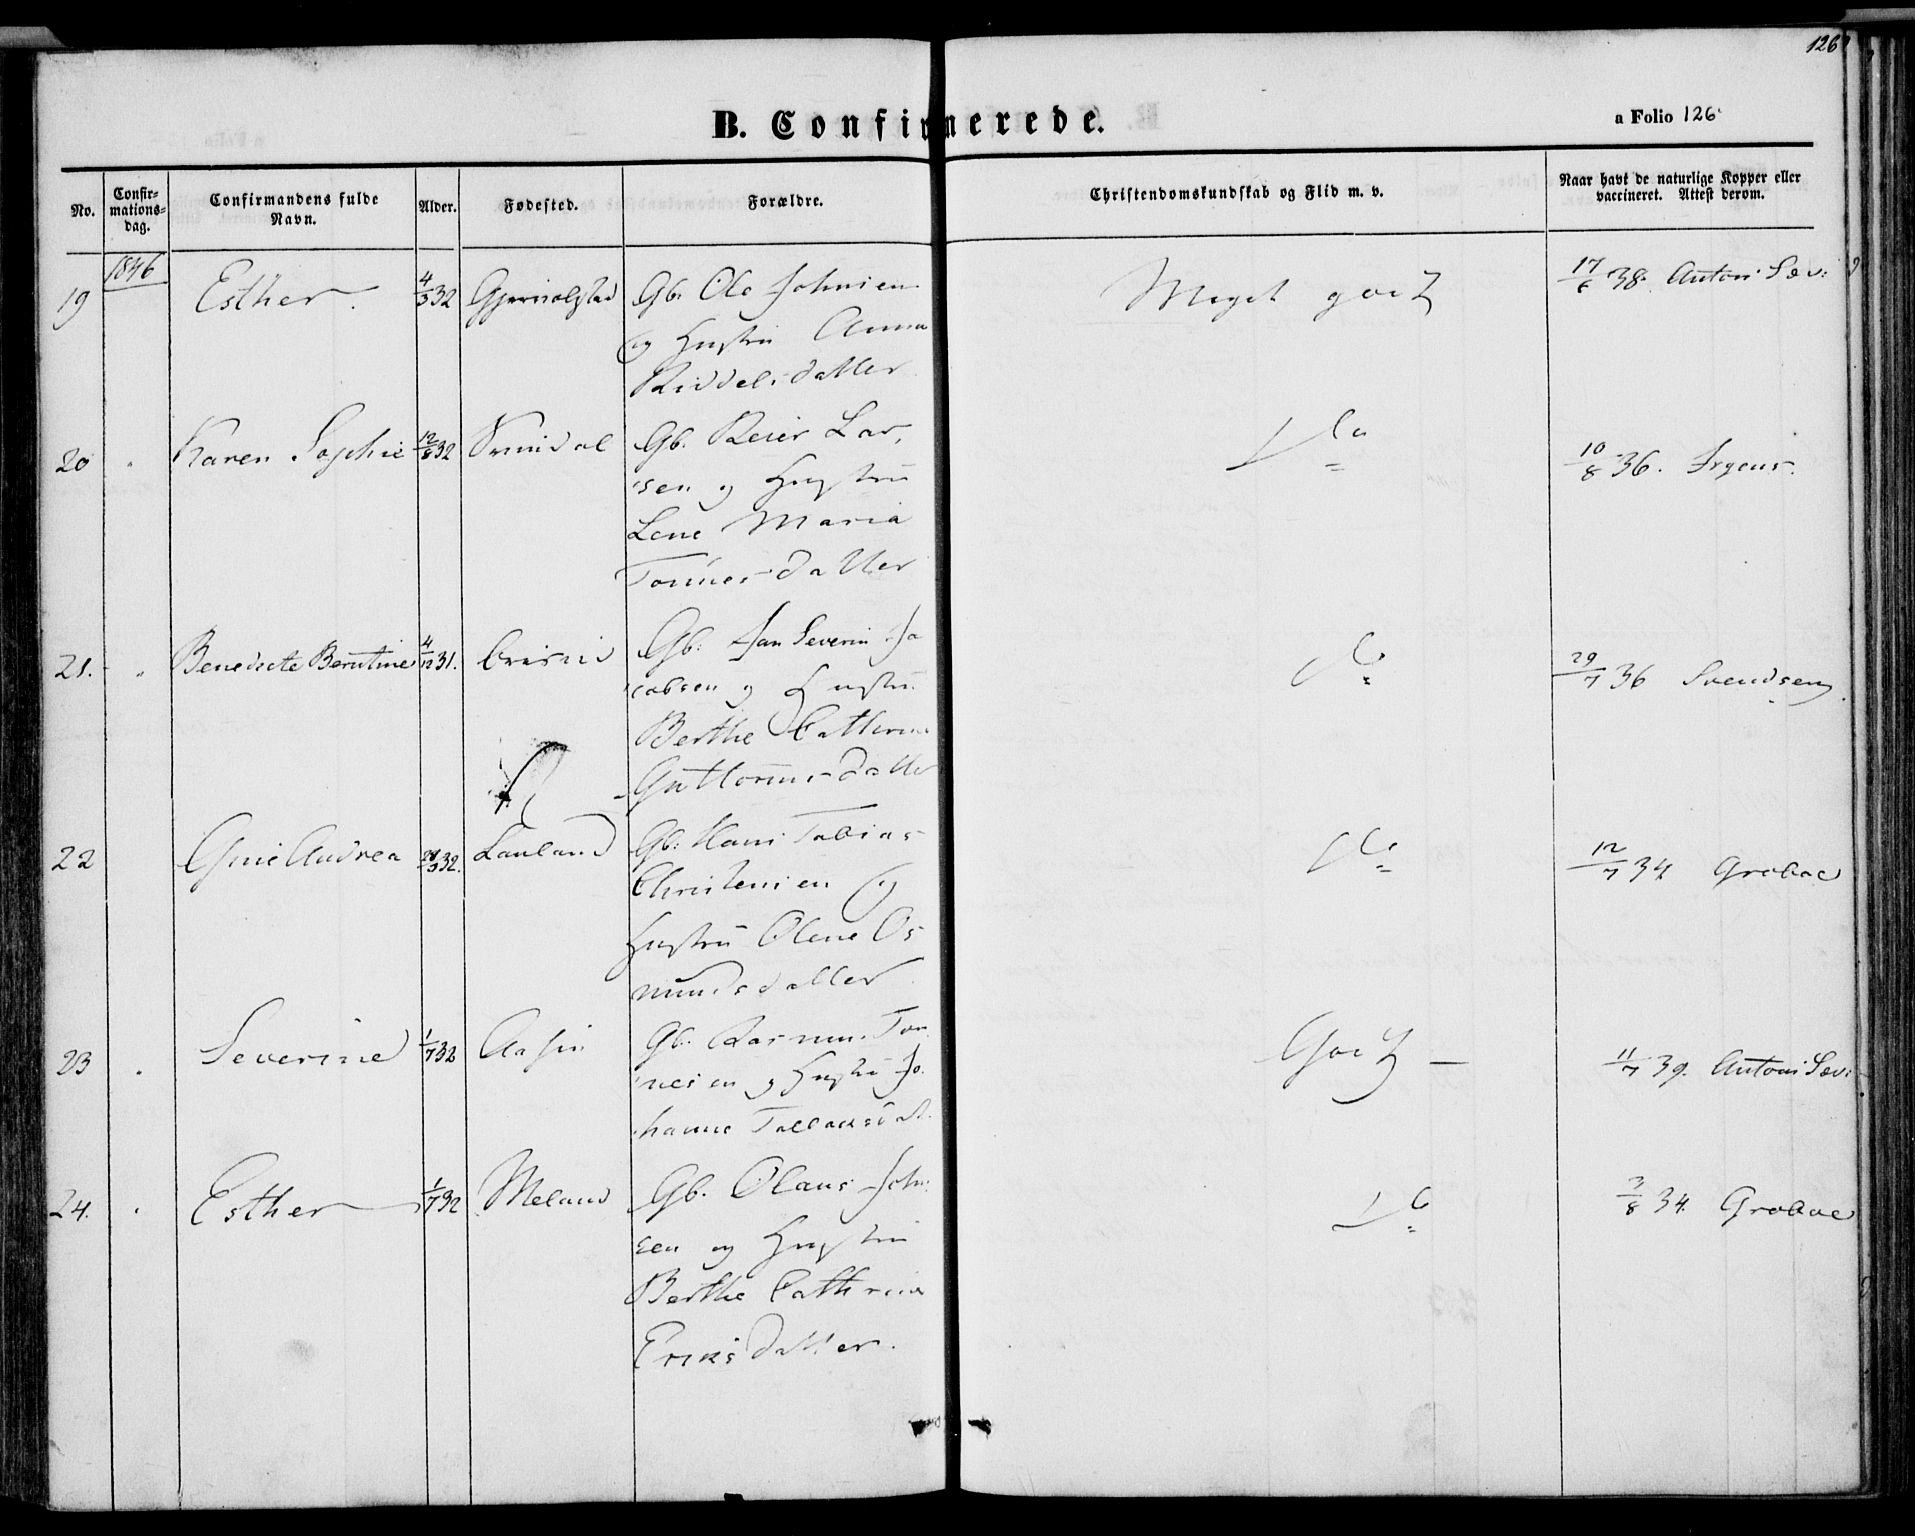 126
B. Confirmerede.
a Folio 126
No.
Confir-
mations-
dag.
Confirmandens fulde
Navn.
Alder.
Fødested.
Forældre.
Christendomskundskab og Flid m. v.
Naar havt de naturlige Kopper eller
vaccineret. Attest derom.
1846
19 Esther 4/3 32 Gb. Ole Johnsen
og Hustru Anna
datter
Meget godt
17/6 38. Anton Sev:
20 Karen Sophie 12/8 32 Gb. Reier Lar-
sen og Hustru
Lene Maria
Tønnesdatter
10/8 36. Irgens.
21. Benedicte Berntine 4/12 31. Gb. Jan Severin Ja
cobsen og Hustru
Berthe Cathrine
Guttormsdatter
29/7 36 Svendsen
22 Gunie Andrea 32. Lauland Gb. Hans Tobias
Christensen og
Hustru Olene Os
mundsdatter
12/7 34 Groboe
23 Severine 1/7 32 Gb. Rasmus Tøn
nesen og Hustru Jo
hanne Tallaksdat
Godt
11/7 39. Anton Sev:
24. Esther 1/7 32 Meland Gb. Olaus John
sen og Hustru
Berthe Cathrine
Eriksdatter.
3/8 34. Groboe